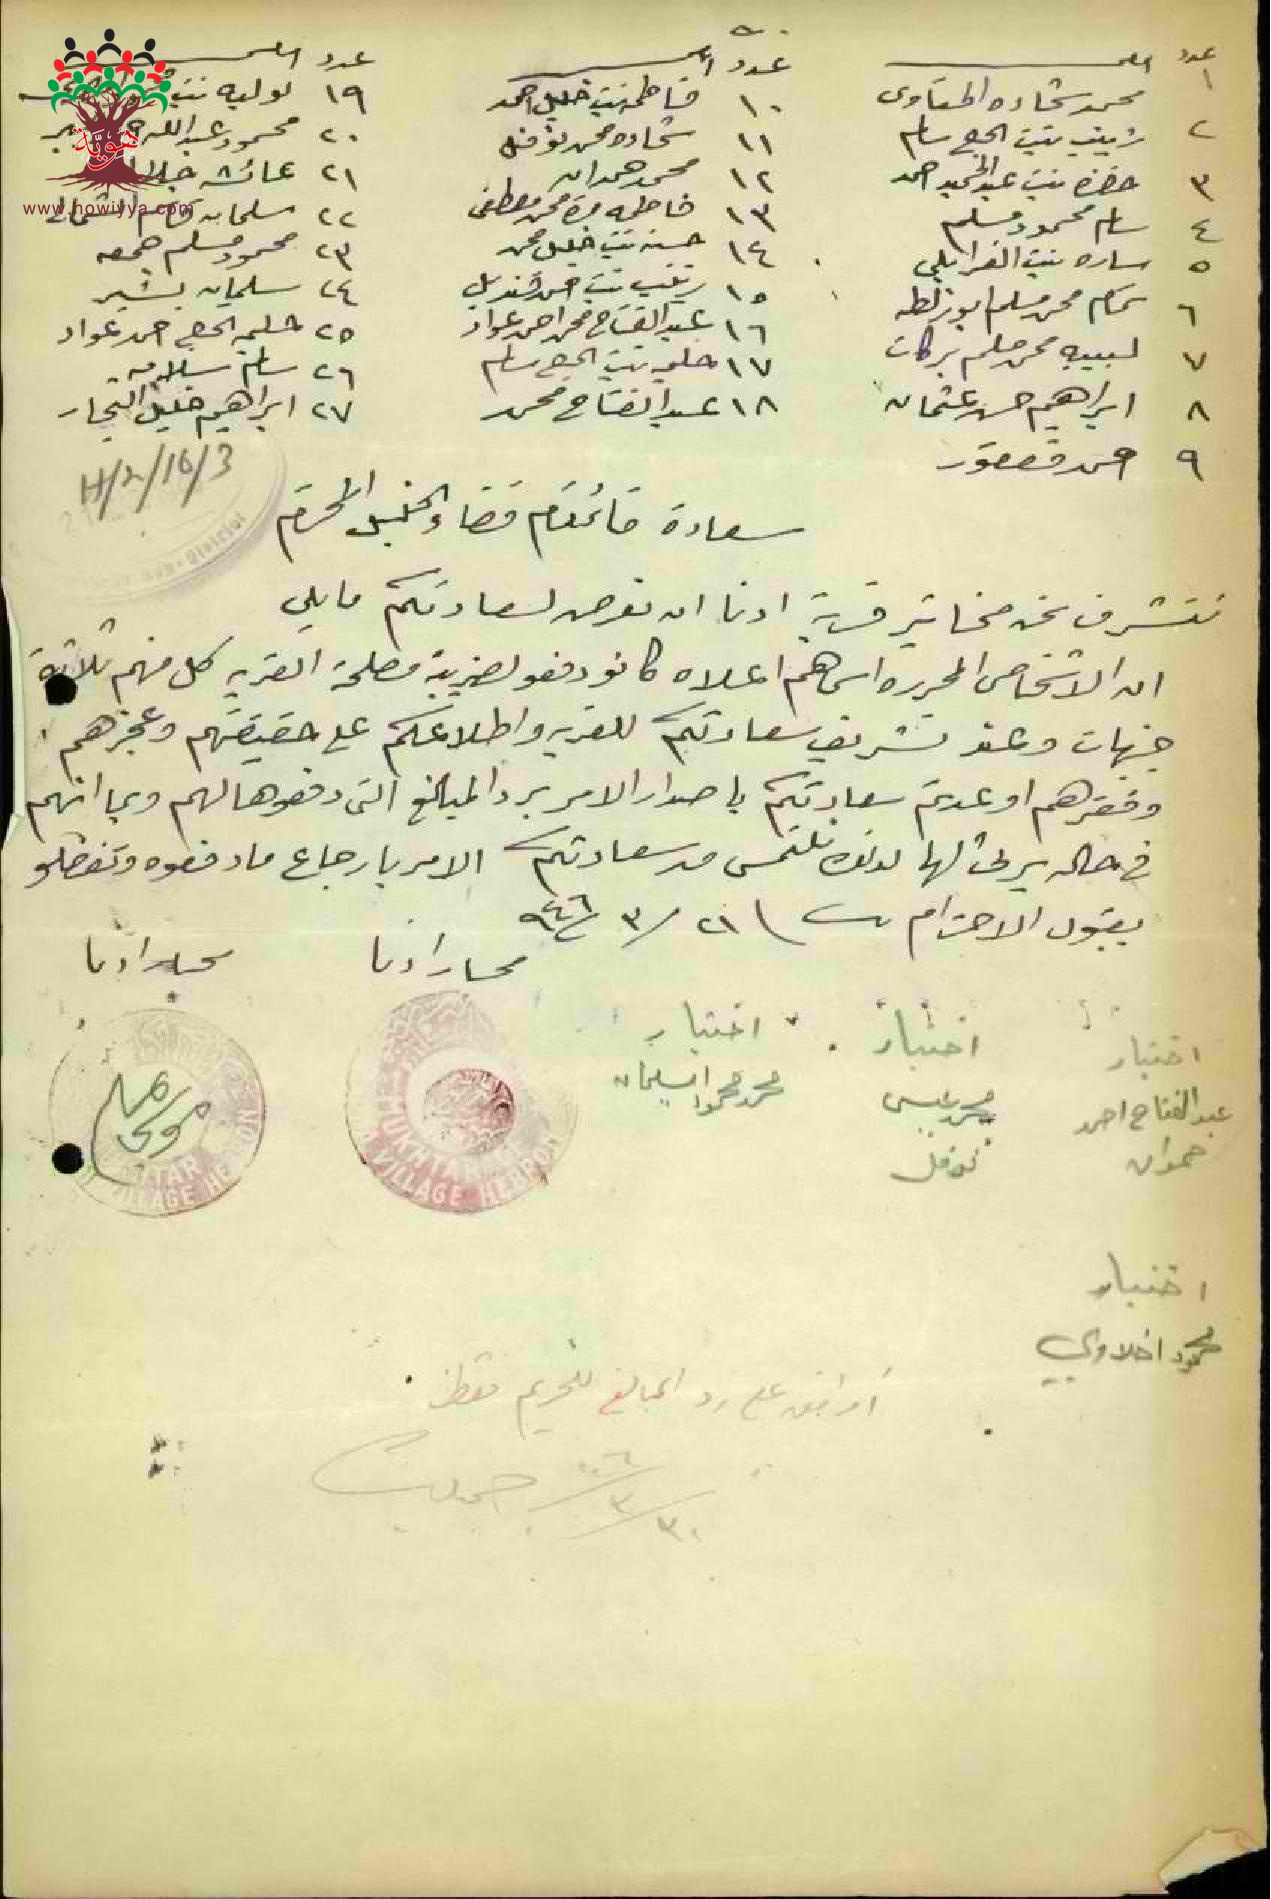 عدد الاسم
١ محمد شحاده الحتاوى
٢ زينب بنت الحج سالم
٣ خضره بنت عبد الحميد احمد
٤ سالم محمود مسلم
٥ ساره بنت
٦ محمد مسلم ابو زلطه
٧ لبيبه محمد مسلم بركات
٨ ابراهيم حسن عثمان
٩ احمد قعقور
عدد الاسم
١٠ فاطمه بنت خليل احمد
١١ شحاده محمد نوفل
١٢ محمد همدان
١٣ فاطمه مرة محمد مصطفى
١٤ حسنه بنت خليل محمد
١٥ زينب بنت احمد قنديل
١٦ عبد الفتاح محمد احمد عواد
١٧ حليمه بنت الحج سالم
١٨ عبد الفتاح محمد
عدد الاسم
١٩ لوليه بنت
٢٠ محمود عبد الله
٢١ عائشه
٢٢ سلمان
٢٣ محمود مسلم جمعه
٢٤ سليمان بشير
٢٥ حليمه الحج احمد عواد
٢٦ سالم سلامه
٢٧ ابراهيم خليل النجار
هوية
www.howiyya.com
H/2/16/3
Sub-District
سعادة قائمقام قضاء الخليل المحترم
نتشرف نحن مخاتير قرية اذنا ان نعرض لسعادتكم مايلي
ان الاشخاص المحرره اسماهم اعلاه كانو دفعو لضريبة مصلحة القريه كل منهم ثلاثة
جنيهات وعند تشريف سعادتكم للقريه واطلاعكم على حقيقتهم وعجزهم
وفقرهم اوعدتم سعادتكم باصدار الامر برد المبالغ التى دفعوها لهم وبما انهم
في حاله يرثى لها لذلك نلتمس من سعادتكم الامر بارجاع ما دفعوه وتفضلو
بقبول الاحترام ٢١/٣/٩٤٦
مختار اذنا
مختار اذنا
MUKHTAR
VILLAGE HEBRON
MUKHTAR
VILLAGE HEBRON
اختيار
عبد الفتاح احمد
همدان
اختيار
محمد عيسى
نوفل
اختيار
محمد محمود سليمان
اختيار
محمود اخلاوي
أوافق على رد المبالغ للحريم فقط
٣٠/٣/